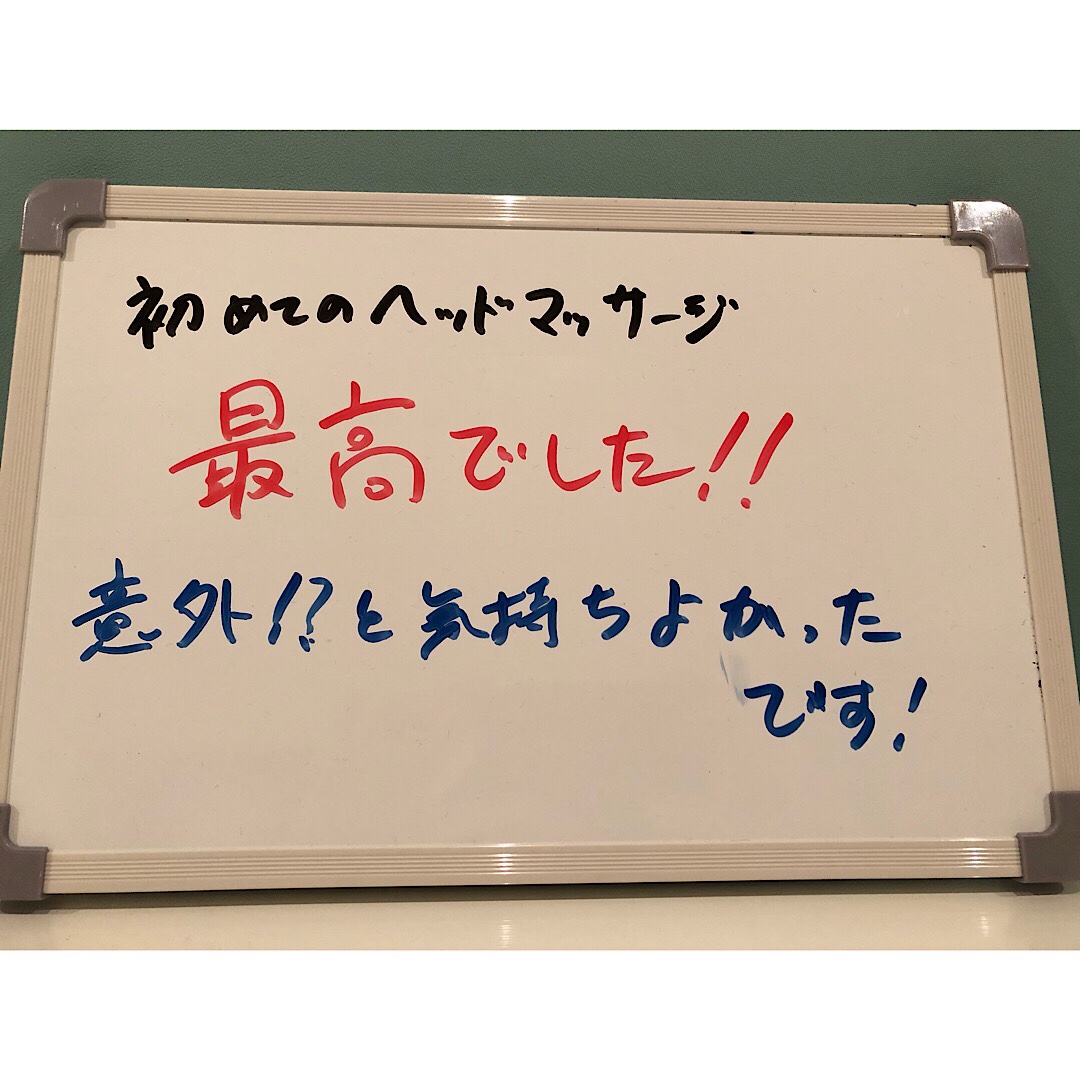 初めてのヘッドマッサージ
最高でした!!
意外!?と気持ちよかった
です!